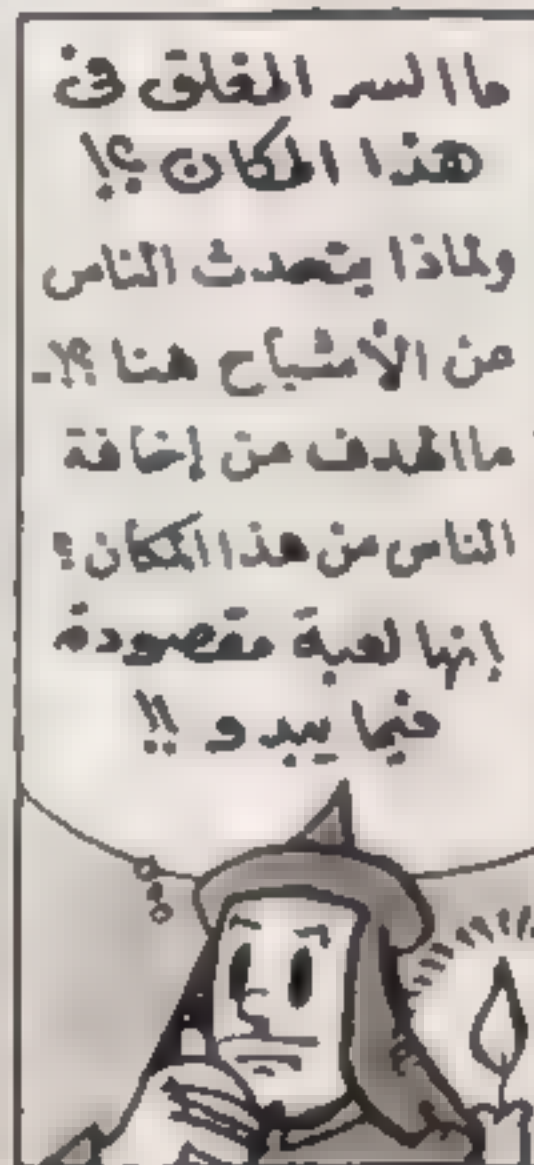 ما السر المغلق فى
هذا المكان ؟!
ولماذا يتحدث الناس
عن الأشباح هنا ؟!ـ
ما الهدف من إخافة
الناس من هذا المكان ؟
إنها لعبة مقصودة
فيما يبدو !!